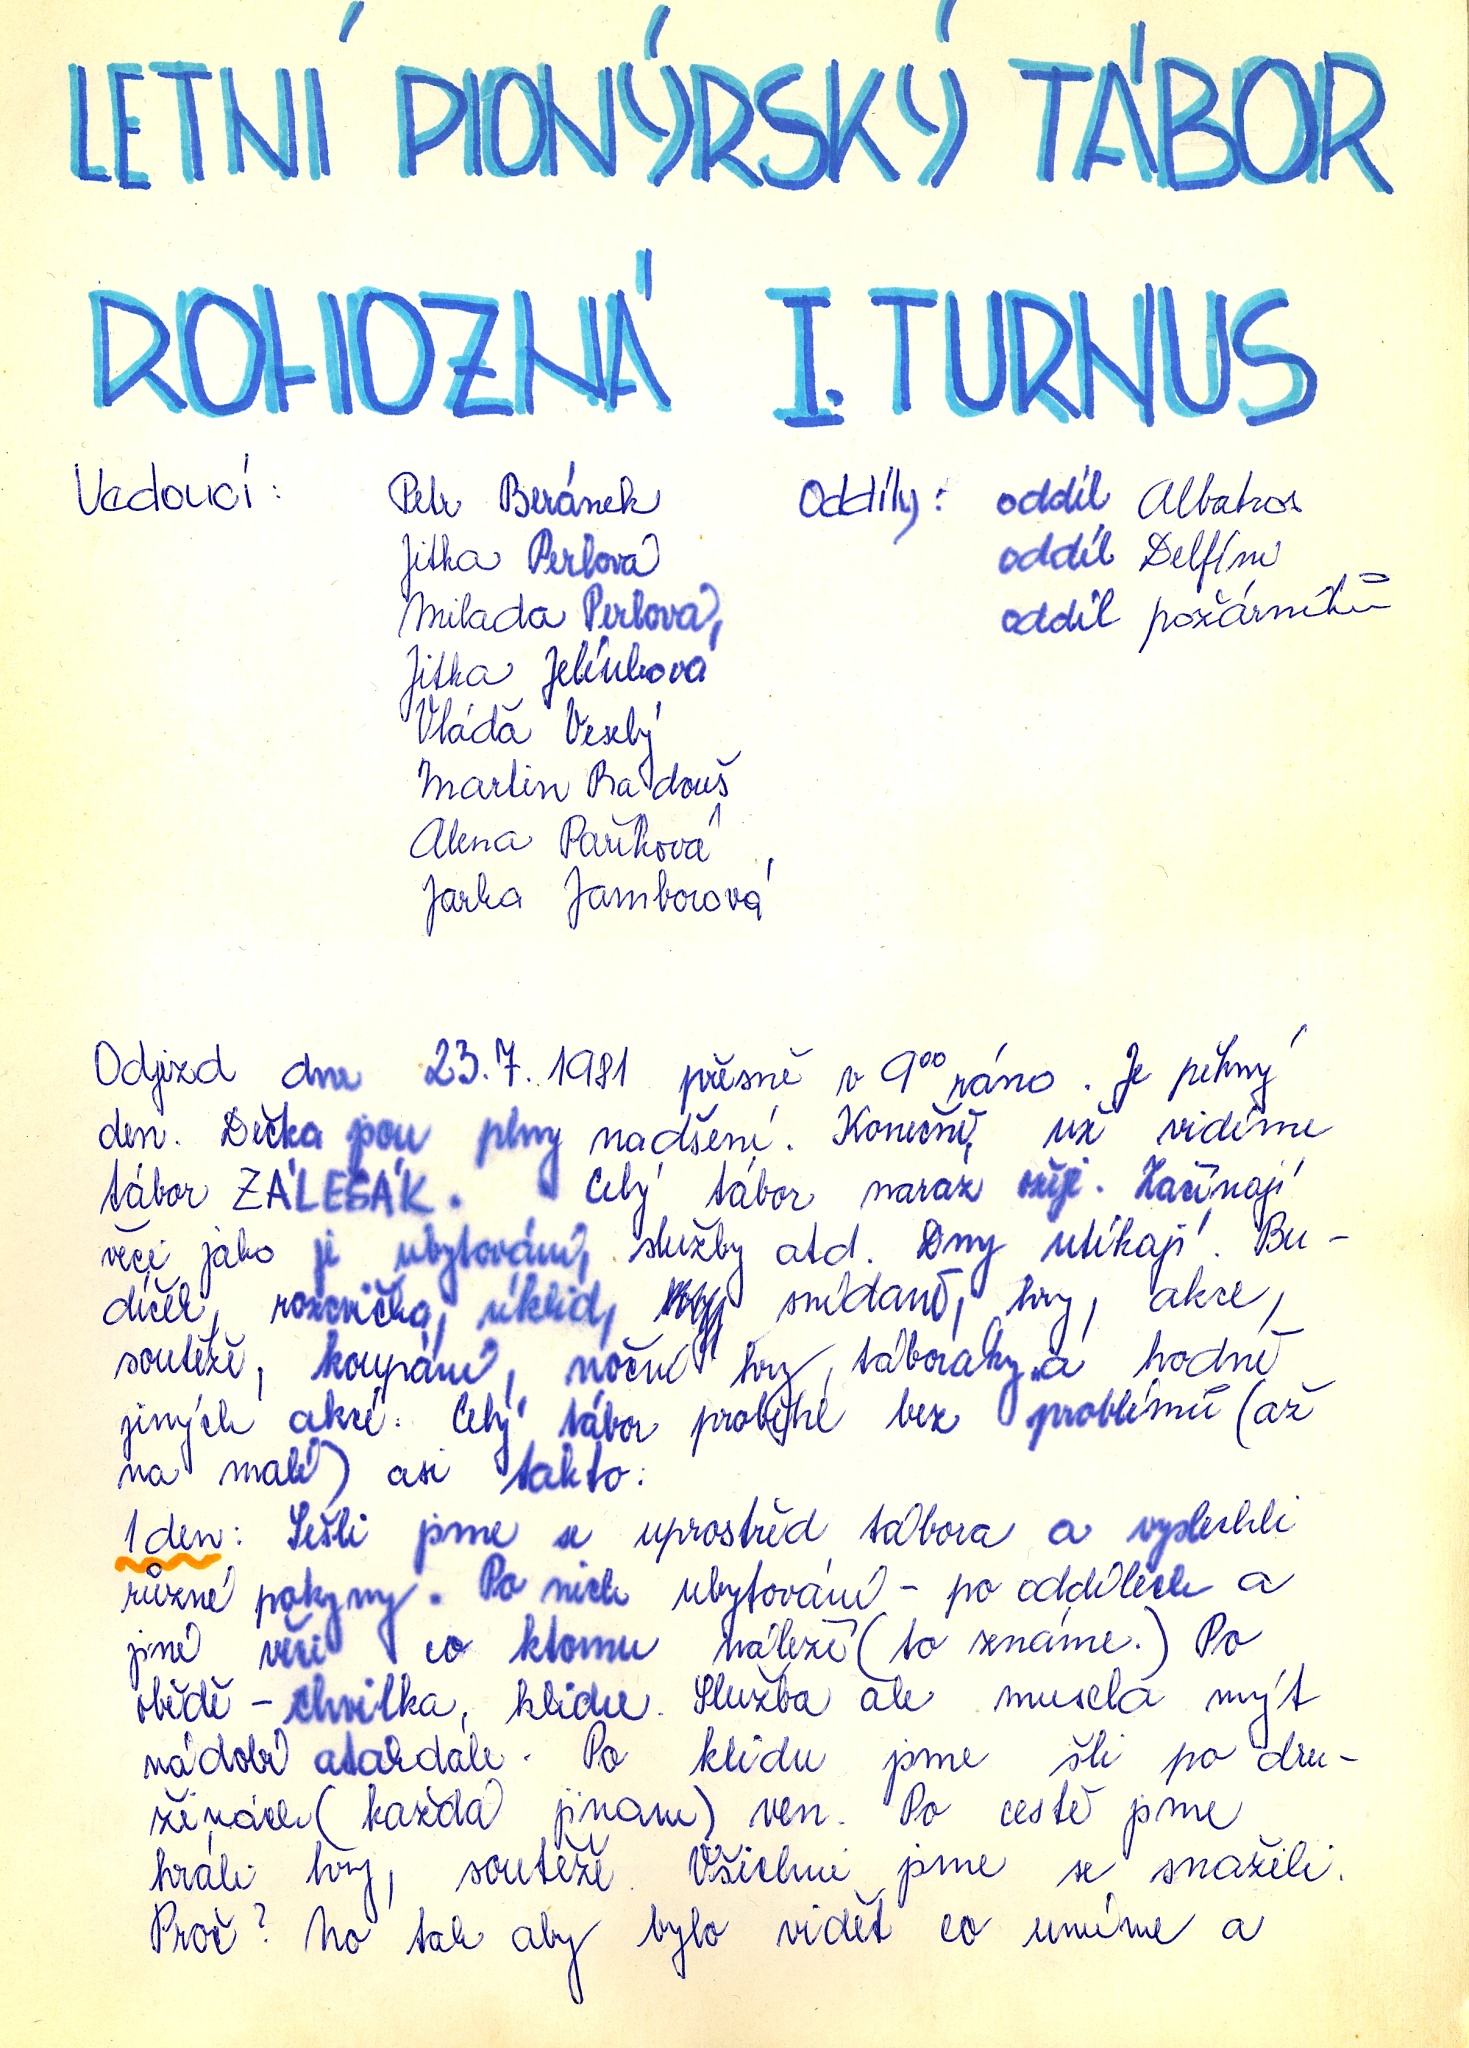 LETNÍ PIONÝRSKÝ TÁBOR
ROHOZNÁ I. TURNUS
Vedoucí: Petr Beránek Oddíly: oddíl Albatros
Jitka Perlová oddíl Delfín
Milada Perlová, oddíl požárníků
Jitka Jelínková
Vláďa Veselý
Martin Radouš
Alena Paříková
Jarka Jamborová
Odjezd dne 23.7. 1981 přesně v 9⁰⁰ ráno. Je pěkný
den. Děcka jsou plny nadšení. Konečně, už vidíme
tábor ZÁLESÁK. Celý tábor naráz ožije. Začínají
věci jako je ubytování, služby atd. Dny utíkají. Bu-
díček, rozcvička, úklid, snídaně, hry, akce,
soutěže, koupání, noční hry, táboráky a hodně
jiných akcí. Celý tábor proběhl bez problémů (až
na malé) asi takto:
1 den: Sešli jsme se uprostřed tábora a vyslechli
různé pokyny. Po nich ubytování - po oddílech a
jiné věci co ktomu náleží (to známe.) Po
obědě - chvilka, klidu. Služba ale musela mýt
nádobí atakdále. Po klidu jsme šli po dru-
žinách (každá jinam) ven. Po cestě jsme
hráli hry, soutěže. Všichni jsme se snažili.
Proč? No tak aby bylo vidět co umíme a